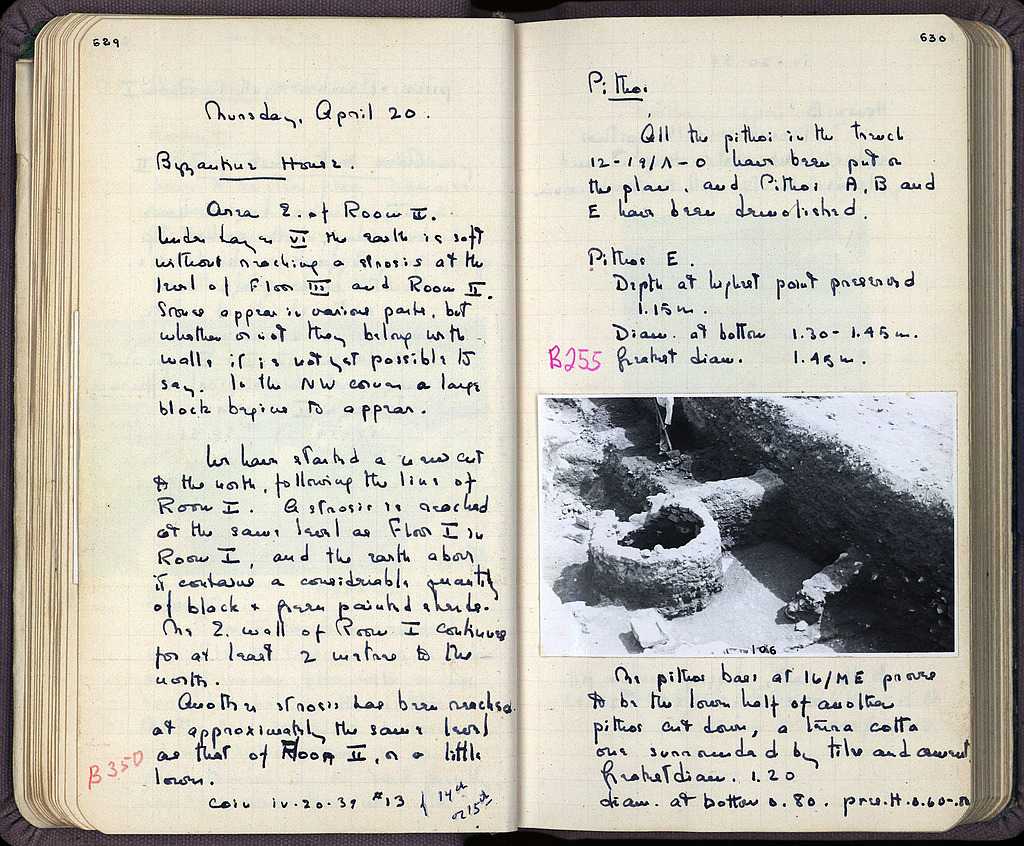 629
Thursday, April 20.
Byzantine House.
Area E. of Room II.
Under Layer VI the earth is soft
without reaching a strosis at the
level of Floor III and Room II.
Stones appear in various parts, but
whether or not they belong with
walls it is not yet possible to
say. In the NW corner a large
block begins to appear.
We have started a new cut
to the north, following the line of
Room I. A strosis is reached
at the same level as Floor I in
Room I, and the earth above
it contains a considerable quantity
of black + green painted sherds.
The E. wall of Room I continues
for at least 2 metres to the
north.
Another strosis has been reached
at approximately the same level
as that of Room II, or a little
lower.
B350
Coin IV.20.39 #13 14th
or 15th
630
Pithoi
All the pithoi in the trench
12-19/Λ-O have been put on
the plan, and Pithoi A, B and
E have been demolished.
Pithos E.
Depth at highest point preserved
1.15 m.
Diam. at bottom 1.30 - 1.45 m.
B255 Greatest diam. 1.45 m.
106
The pithos base at 16/ME proves
to be the lower half of another
pithos cut down, a terra cotta
one surrounded by tiles and cement
Greatest diam. 1.20
diam. at bottom 0.80. pres. H. 0.60-.80